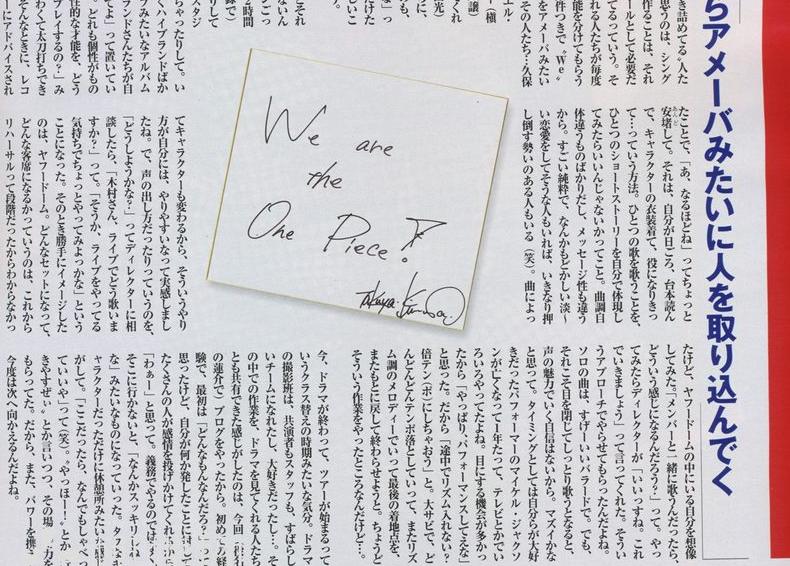 らアメーバみたいに人を取り込んでく
き詰めてる〝人た
思うのは、シング
作ることは、それ
ールとして必要だ
てるっていう。そ
れる人たちが毎度
能を分けてもらう
件つきで〝We
をアメーバみたい
その人たち…久保
ちゃったりして。い
くハイブランドばか
みたいなアルバム
ランドさんたちが自
てよ」って置いてい
。どれも個性がもの
性的な才能を、どう
プレイするの?」み
わくて太刀打ちでき
そんなときに、レコ
ーにアドバイスされ
たことで、「あ、なるほどね」ってちょっと
安堵して。それは、自分が日ごろ、台本読ん
で、キャラクターの衣装着て、役になりきっ
て…っていう方法。ひとつの歌を歌うことを、
ひとつのショートストーリーを自分で体現し
てみたらいいんじゃないかってこと。曲調自
体違うものばかりだし、メッセージ性も違う
から。すごい純粋で、なんかもどかしい淡〜
い恋愛をしてそうな人もいれば、いきなり押
し倒す勢いのある人もいる(笑)。曲によっ
We are
the
One Piece!
てキャラクターも変わるから、そういうやり
方が自分には、やりやすいなって実感しまし
たね。で、声の出し方だったりっていうのを、
「どうしようかな?」ってディレクターに相
談したら、「木村さん、ライブでどう歌いま
すか?」って。「そうか、ライブをやってる
気持ちでちょっとやってみよっかな」という
ことになった。そのとき勝手にイメージした
のは、ヤフードーム。どんなセットになって、
どんな客席になるかっていうのは、これから
リハーサルって段階だったからわからなかっ
たけど、ヤフードームの中にいる自分を想像
してみた。「メンバーと一緒に歌うんだったら、
どういう感じになるんだろう?」って。やっ
てみたらディレクターが「いいっすね。これ
でいきましょう」って言ってくれた。そうい
うアプローチでやらせてもらったんだよね。
ソロの曲は、すげーいいバラードで。でも、
それこそ目を閉じてしっとり歌うとなると、
声の魅力でいく自信はないから、マズイかな
と思って。タイミングとしては自分らが大好
きだったパフォーマーのマイケル・ジャクソ
ンが亡くなって1年たって、テレビとかでい
ろいろやってたよね。目にする機会が多かっ
たから「やっぱり、パフォーマンスしてえな」
と思った。だから「途中でリズム入れない?
倍テン(ポ)にしちゃおう」と。大サビで、ど
んどんどんテンポ落としていって、またリズ
ム調のメロディーでいって最後の着地点を、
またもとに戻して終わらせようと。ちょうど
そういう作業をやったところなんだけど…。
今、ドラマが終わって、ツアーが始まるって
いうクラス替えの時期みたいな気分。ドラマ
の撮影班は、共演者もスタッフも、すばらし
いチームになれたし、大好きだったし…。そ
の中での作業を、ドラマを見てくれる人たち
とも共有できた感じがしたのは、今回
の蓮介でブログをやったから。初めての経
験で、最初は「どんなもんなんだろ?」って
思ったけど、自分が何か発したことに
たくさんの人が感情を投げかけてくれるから
「わぁー」と思って。義務でやるのでは
そこに行かないと、「なんかスッキリしね
な」みたいなものになっていった。
ャラクターだっただけに休憩所みたいな感じ
がして。「ここだったら、なんでもしゃべっ
ていいや」って(笑)。「やっほー!」とか
きやすぜぃ」とか言いつつ、その場
もらってた。だから、また、パワーを
今度は次へ向かえるんだよね。